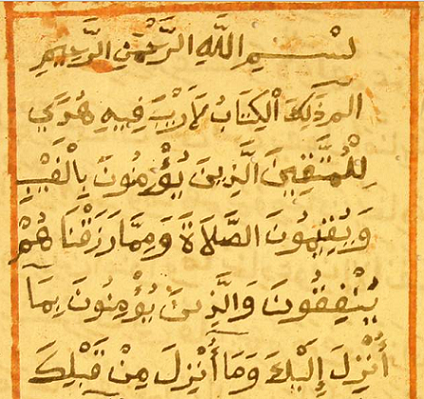 بِسْمِ اللَّهِ الرَّحْمَنِ الرَّحِيمِ
الم ذَلِكَ الْكِتَابُ لَا رَيْبَ فِيهِ هُدًى
لِلْمُتَّقِينَ الَّذِينَ يُؤْمِنُونَ بِالْغَيْبِ
وَيُقِيمُونَ الصَّلَاةَ وَمِمَّا رَزَقْنَاهُمْ
يُنْفِقُونَ وَالَّذِينَ يُؤْمِنُونَ بِمَا
أُنْزِلَ إِلَيْكَ وَمَا أُنْزِلَ مِنْ قَبْلِكَ